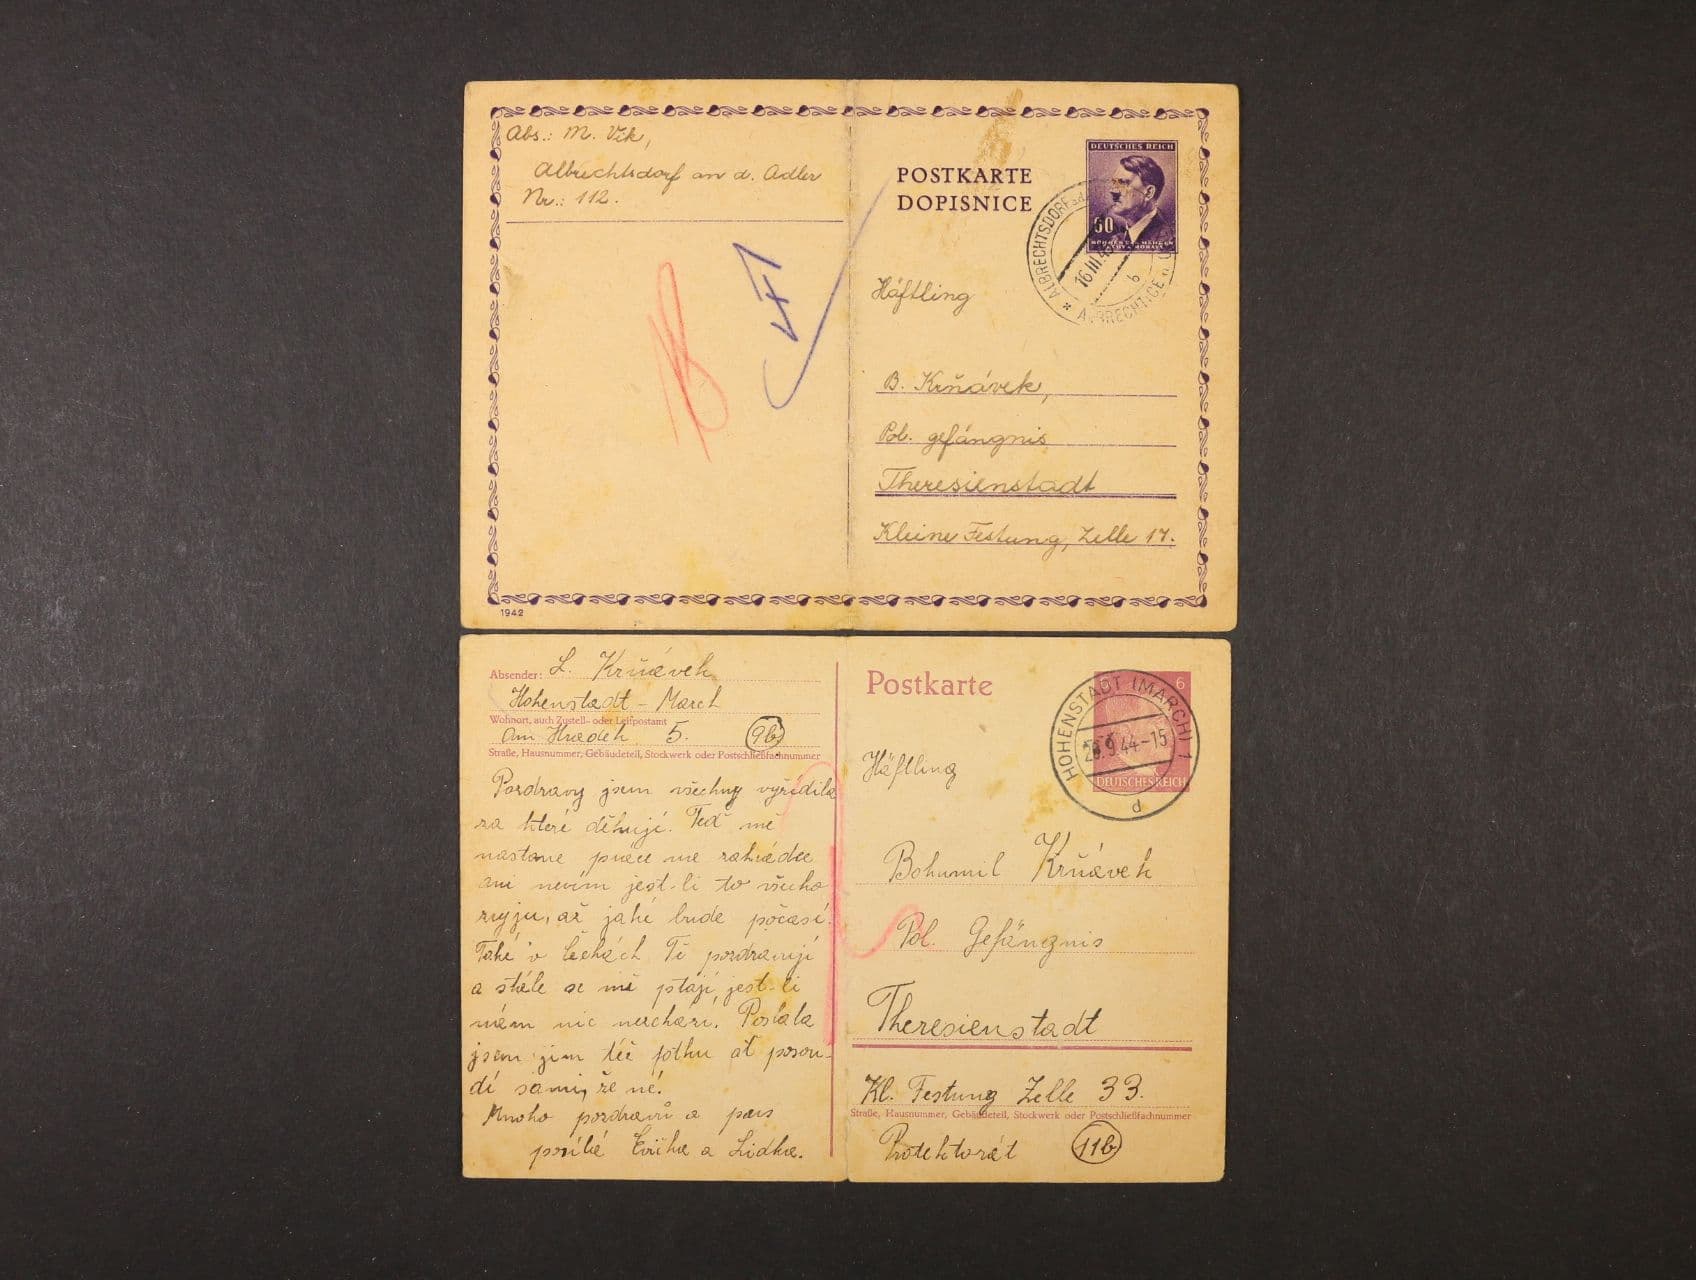 Abs.: M. Vik,
Albrechtsdorf an d. Adler
Nr.: 112.
POSTKARTE
DOPISNICE
DEUTSCHES REICH
60
BÖHMEN UND MÄHREN
ČECHY A MORAVA
ALBRECHTSDORF a.d.
16.III.4
b
ALBRECHTICE n.
Häftling
B. Krňávek,
Pol. gefängnis
Theresienstadt
Kleine Festung, Zelle 17.
1942
Absender: L. Krňávek
Hohenstadt - March
Wohnort, auch Zustell- oder Leitpostamt
Am Hradek 5. 9b
Straße, Hausnummer, Gebäudeteil, Stockwerk oder Postschließfachnummer
Pozdravy jsem všechny vyřídila
za které děkují. Teď mě
nastane práce na zahrádce
ani nevím jest-li to všecko
zryju, až jaké bude počasí.
Také v Čechách Tě pozdravují
a stále se mě ptají, jest-li
mám nic nezchází. Poslala
jsem jim též fotku ať posou-
dí sami, že né.
Mnoho pozdravů a pus
posílá Evička a Lidka.
Postkarte
6
DEUTSCHES REICH
HOHENSTADT (MARCH) 1
9.44-15
d
Häftling
Bohumil Krňávek
Pol. Gefängnis
Theresienstadt
Kl. Festung Zelle 33.
Straße, Hausnummer, Gebäudeteil, Stockwerk oder Postschließfachnummer
Protektorát 11b